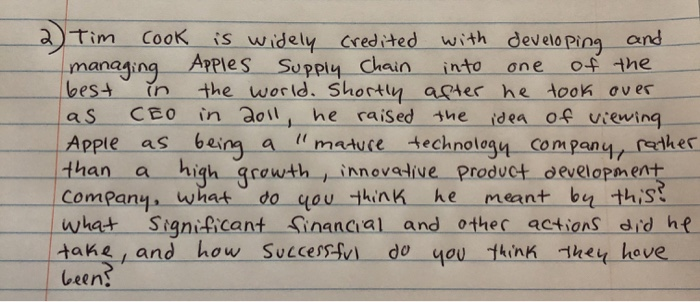 2) Tim Cook is widely credited with developing and
managing Apples Supply Chain into one of the
best in the world. Shortly after he took over
as CEO in 2011, he raised the idea of viewing
Apple as being a "mature technology company, rather
than a high growth, innovative product development
company. what do you think he meant by this?
what Significant financial and other actions did he
take, and how Successful do you think they have
been?